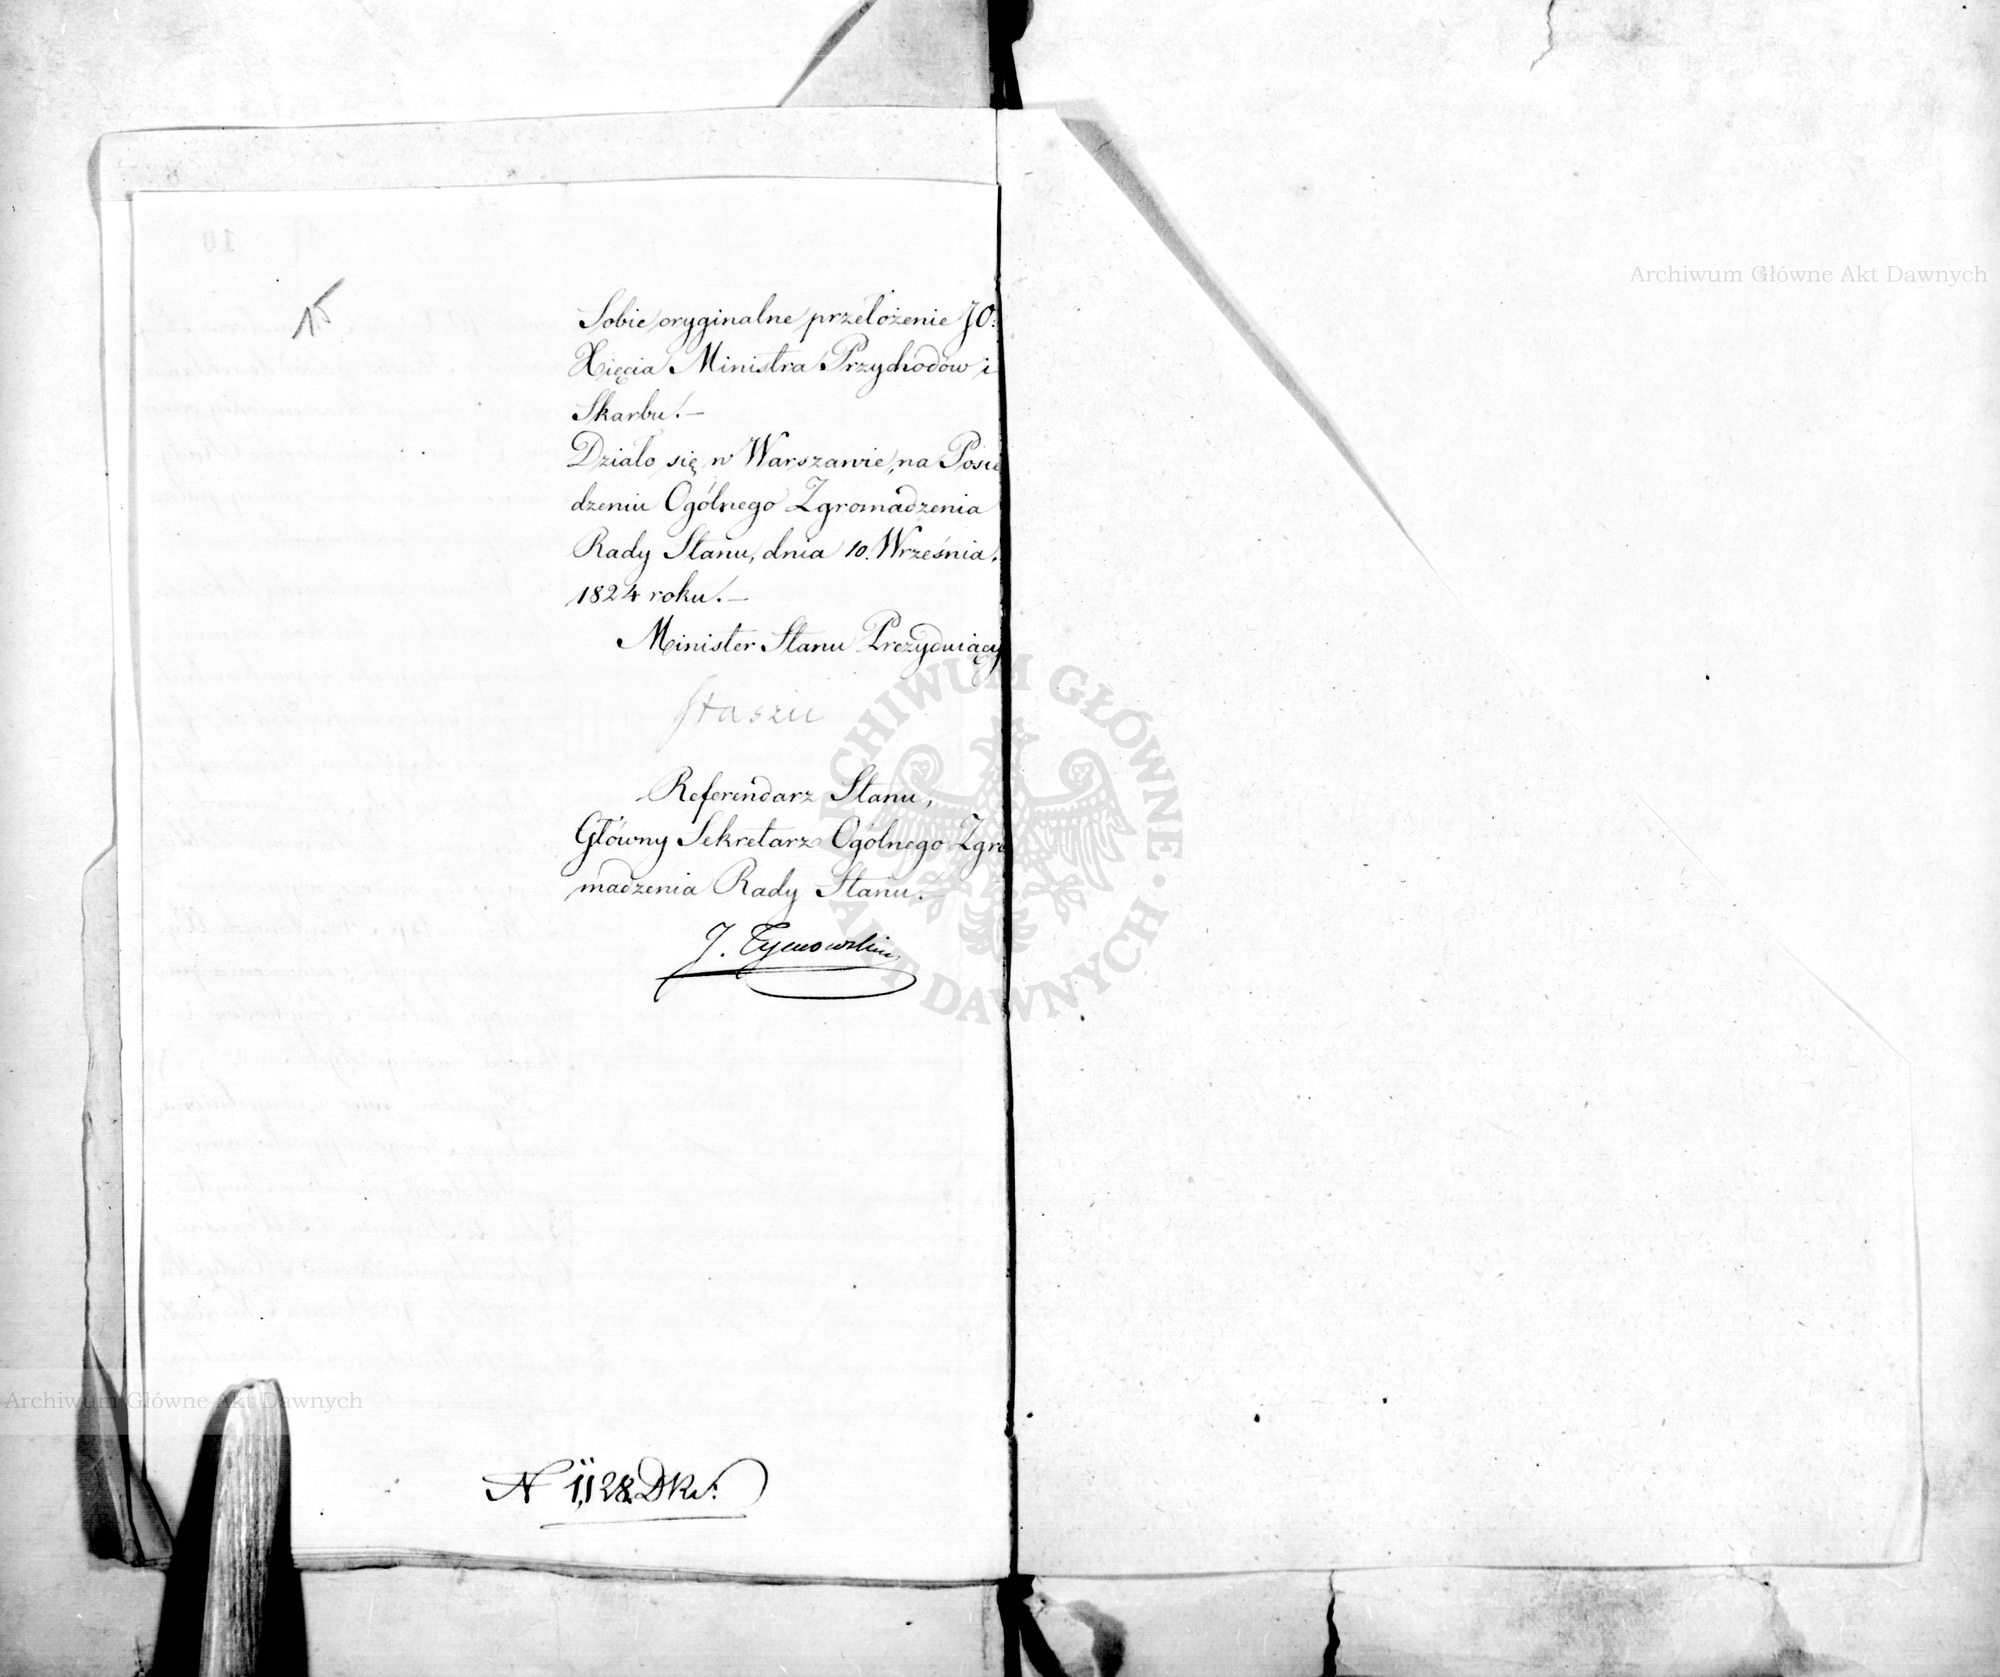 15
Sobie oryginalne przełożenie JO:
Xięcia Ministra Przychodów i
Skarbu.—
Działo się w Warszawie, na Posie
dzeniu Ogólnego Zgromadzenia
Rady Stanu, dnia 10. Września.
1824 roku.—
Minister Stanu Prezyduiący
Staszic
Referendarz Stanu,
Główny Sekretarz Ogólnego Zgro
madzenia Rady Stanu.—
J. Tymowski
N 1,128. DKs:
Archiwum Główne Akt Dawnych
ARCHIWUM GŁÓWNE AKT DAWNYCH
Archiwum Główne Akt Dawnych